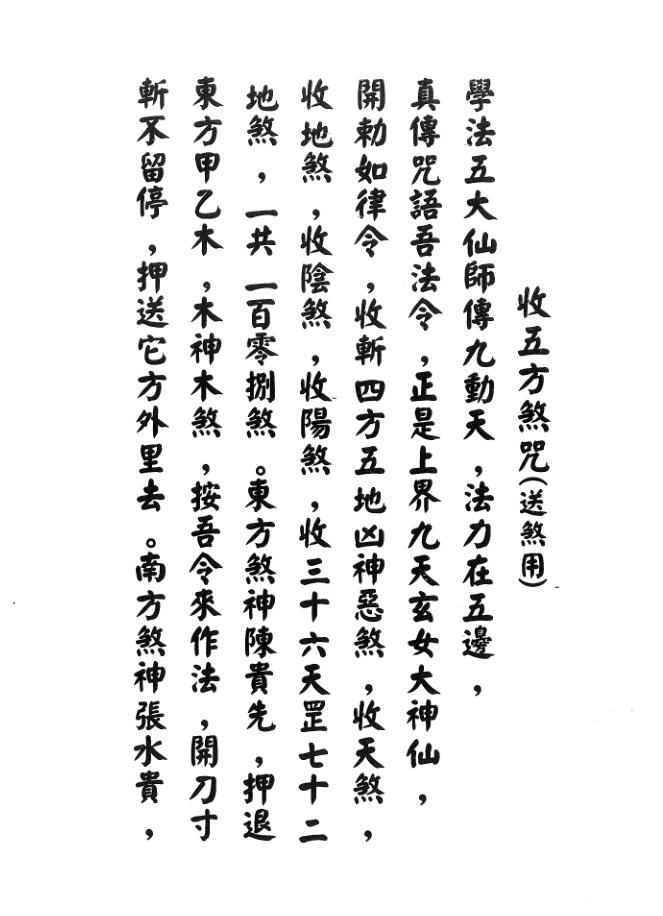 收五方煞咒(送煞用)
學法五大仙師傳九動天，法力在五邊，
真傳咒語吾法令，正是上界九天玄女大神仙，
開勅如律令，收斬四方五地凶神惡煞，收天煞，
收地煞，收陰煞，收陽煞，收三十六天罡七十二
地煞，一共一百零捌煞。東方煞神陳貴先，押退
東方甲乙木，木神木煞，按吾令來作法，開刀寸
斬不留停，押送它方外里去。南方煞神張水貴，